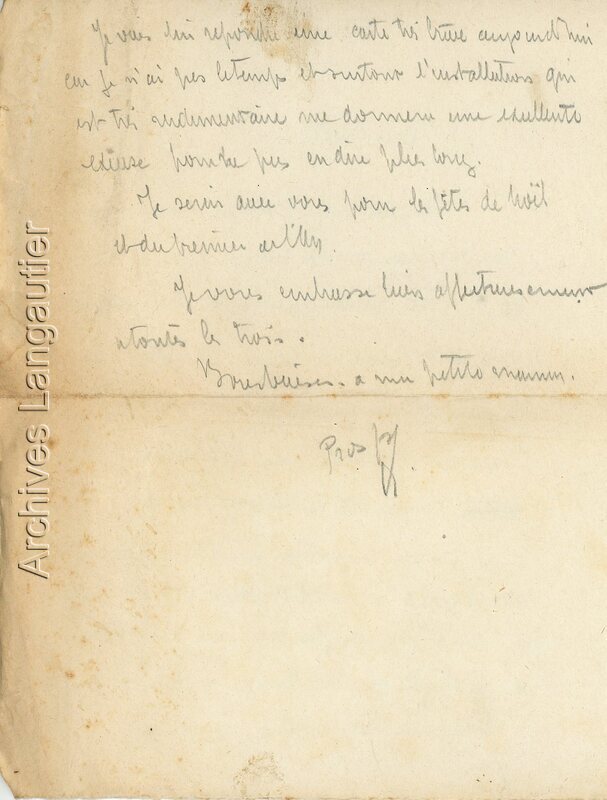 Je vais lui repondre une carte très brève aujourd'hui
car je n'ai pas le temps et surtout l'installation qui
est très rudimentaire me donnera une exellente
exeuse pour ne pas en dire plus long.
Je serai avec vous pour les fêtes de Noël
et du premier de l'An.
Je vous embrasse bien affectueusement
toutes les trois.
Bons baisers a ma petite maman.
Prosp
Archives Langautier